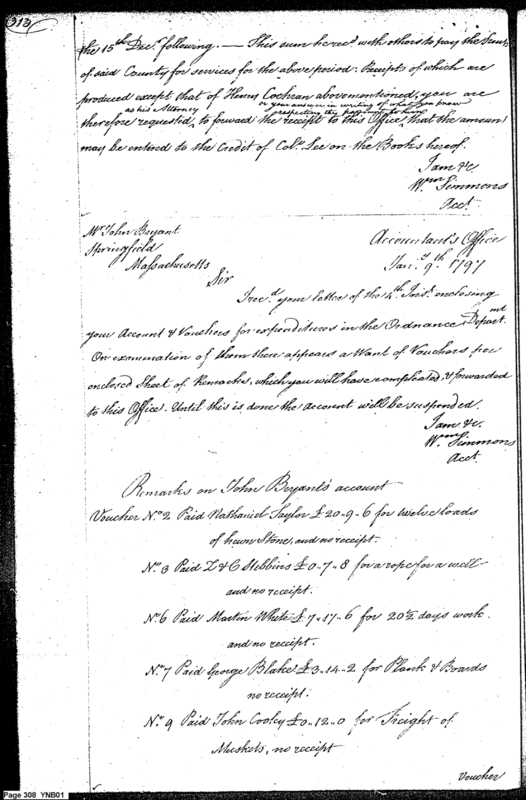 313)
the 15th Decr following. — This sum he recd with others to pay the
of said County for services for the above period. Receipts of which are
produced except that of Henry Cochran abovementioned, you are
as his Attorney or your answer in writing of what you know
respecting the
therefore requested to forward the receipt to this Office, that the amount
may be entered to the credit of Colo. Lee on the Books hereof.
I am &c.
Wm Simmons
Acct.
Mr John Bryant
Springfield
Massachusetts
Accountant's Office
Jany 9th 1797
Sir
I recd your letter of the 4th Inst. enclosing
your Account & Vouchers for expenditures in the Ordnance Departmt
On examination of them there appears a Want of Vouchers per
enclosed Sheet of Remarks, which you will have compleated, & forwarded
to this Office. Until this is done the account will be suspended.
I am &c.
Wm Simmons
Acct.
Remarks on John Bryant's account
Voucher No. 2 Paid Nathaniel Taylor £20-9-6 for twelve loads
of hewn Stone, and no receipt.
No. 3 Paid Z & C Stebbins £0-7-8 for a rope for a well
and no receipt.
No. 6 Paid Martin White £7-17-6 for 20 1/2 days work
and no receipt.
No. 7 Paid George Blake £3-14-2 for Plank & Boards
no receipt.
No. 9 Paid John Cooley £0-12-0 for Freight of
Muskets, no receipt
Voucher
Page 308 YNB01